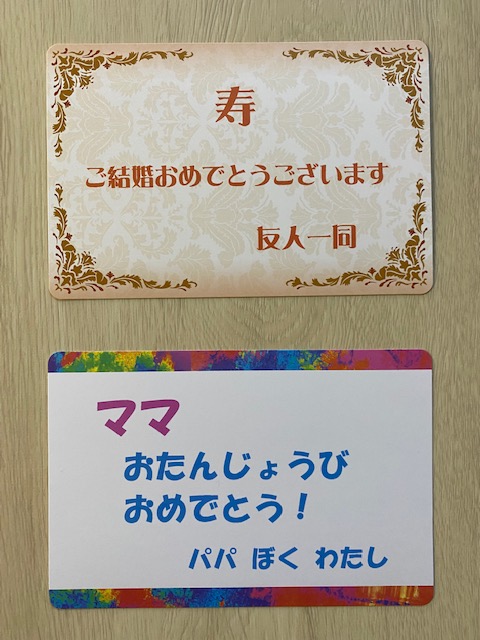 寿
ご結婚おめでとうございます
友人一同
ママ
おたんじょうび
おめでとう！
パパ ぼく わたし